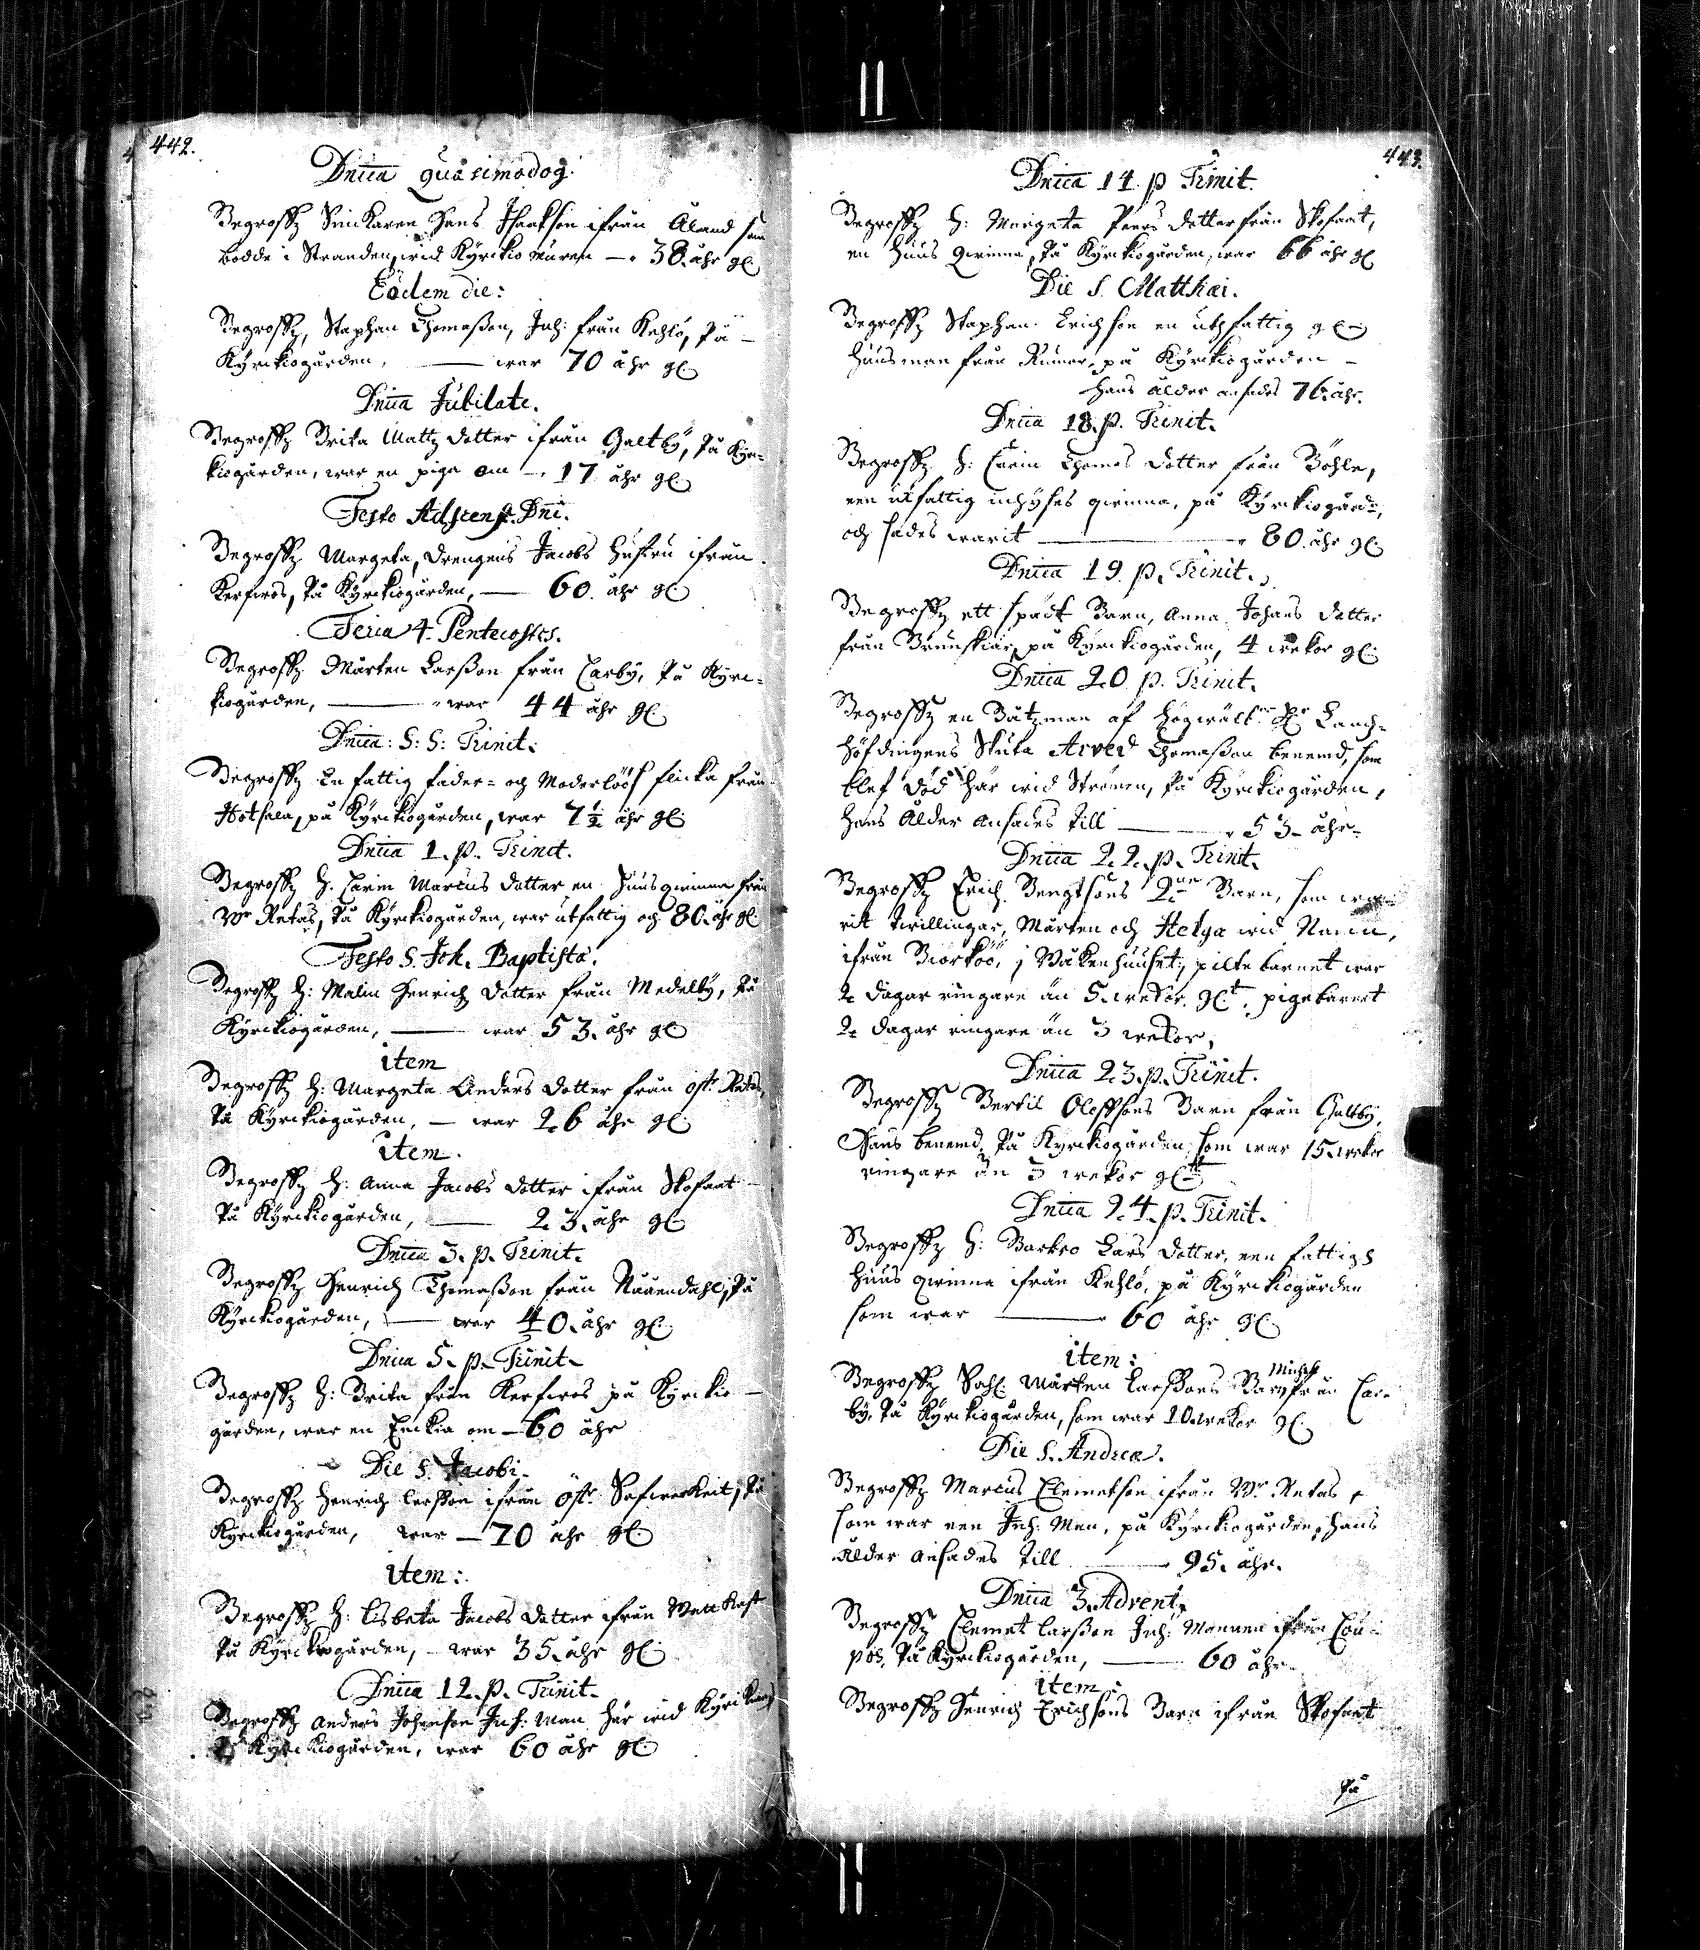 442.
Dnica Quasimodog.
Begroffz Snickaren Hans Isaakson ifrån Åland som
bodde i Stranden, wid Kyrckio muren — 38. åhr gl.
Eodem die:
Begroffz, Staphan Thomaßon, Inh: från Kehlö, På —
Kyrckiogården, — war 70 åhr gl.
Dnica Jubilate.
Begroffz Brita Mattz dotter ifrån Galtby, På Kyr=
kiogården, war en piga om — 17 åhr gl.
Festo Adscens. Dni.
Begroffz Margeta, Drengens Jacobs Hustru ifrån
Kerfwos, På Kyrckiogården, — 60. åhr gl.
Feria 4. Pentecostes.
Begroffz Mårten Larßon från Carby, På Kyrc=
kiogården, — war 44 åhr gl.
Dnica: S: S: Trinit.
Begroffz En fattig fader= och Moderlöös flicka från
Hotsala, på Kyrckiogården, war 7½ åhr gl.
Dnica 1. p. Trinit.
Begroffz H. Carin Marcus dotter en huusqwinna från
Wr Retas, På Kyrckiogården, war utfattig och 80. åhr gl.
Festo S. Joh. Baptistä.
Begroffz H: Malin Henrichz dotter från Medelby, På
Kyrckiogården, — war 53. åhr gl.
item
Begroffz H: Margeta Anders dotter från Öst. Retas,
På Kyrckiogården, — war 26 åhr gl.
item.
Begroffz H: Anna Jacobs dotter ifrån Skofaat
På Kyrckiogården, — 23. åhr gl.
Dnica 3. p. Trinit.
Begroffz Henrich Thomaßon från Nääendahl, På
Kyrckiogården, — war 40. åhr gl.
Dnica 5. p. Trinit.
Begroffz H: Brita från Kerfwos på Kyrckio —
gården, war en Enckia om — 60 åhr
Die S. Jacobi.
Begroffz Henrich Larßon ifrån Östr. På
Kyrckiogården, war — 70 åhr gl.
item:
Begroffz H: Lisbeta Jacobs dotter ifrån Wattkast
På Kyrckiogården, — war 35. åhr gl.
Dnica 12. p. Trinit.
Begroffz Anders Johanson Inh: Man här wid
På Kyrckiogården, war 60 åhr gl.
443.
Dnica 14. p Trinit.
Begroffz H: Margeta Peers dotter från Skofaat,
en huus qwinna, På Kyrckiogården, war 66 åhr gl.
Die S. Matthæi.
Begroffz Staphan Erichson en uthfattig gl.
huusman från Rumar, på Kyrckiogården —
hans ålder ansades 76. åhr.
Dnica 18. p. Trinit.
Begroffz H: Carin Thomas dotter från Böhle,
een utfattig inhyses qwinna, på Kyrckiogård:,
och sades warit — 80. åhr gl.
Dnica 19. p. Trinit.
Begroffz ett späät Barn, Anna Johans dotter
från Brunskiär, på Kyrckiogården, 4 wekor gl.
Dnica 20. p. Trinit.
Begroffz en Båtzman af Högwälb. Hr Land=
höfdingens Skuta Arved Thomaßon benemd, som
blef död här wid Strömen, På Kyrckiogården,
hans Ålder ansades till — 53 — åhr —
Dnica 22. p. Trinit.
Begroffz Erich Bengtsons 2ne Barn, som wa=
rit twillingar, Mårten och Helga wid Namn,
ifrån Biörköö, i Wåkenhuuset, pilte barnet war
2 dagar ringare än 5. wekor. gl.t. pigebarnet
2 dagar ringare än 3 wekor,
Dnica 23. p. Trinit.
Begroffz Bertil Oloffsons Barn från Galtby,
Hans benemd, På Kyrckiogården som war 15. wekor
ringare än 3 wekor gl.
Dnica 24. p. Trinit.
Begroffz H: Barbro Lars dotter, een fattigh
huus qwinna ifrån Kehlö, på Kyrckiogården
som war — 60 åhr gl.
item:
Begroffz Sahl. Mårten Larßons Barn Michell från Car=
by, På Kyrckiogården, som war 10. wekor gl.
Die S. Andreæ.
Begroffz Marcus Clemetson ifrån Wr. Retas
som war een Inh: Man, på Kyrckiogården, hans
ålder ansades till — 95. åhr.
Dnica 3. Advent.
Begroffz Clemet Larßon Inh: Mannen ifrån Lou=
pos, På Kyrckiogården, — 60 åhr —
item:
Begroffz Henrich Erichsons Barn ifrån Skofaat
På